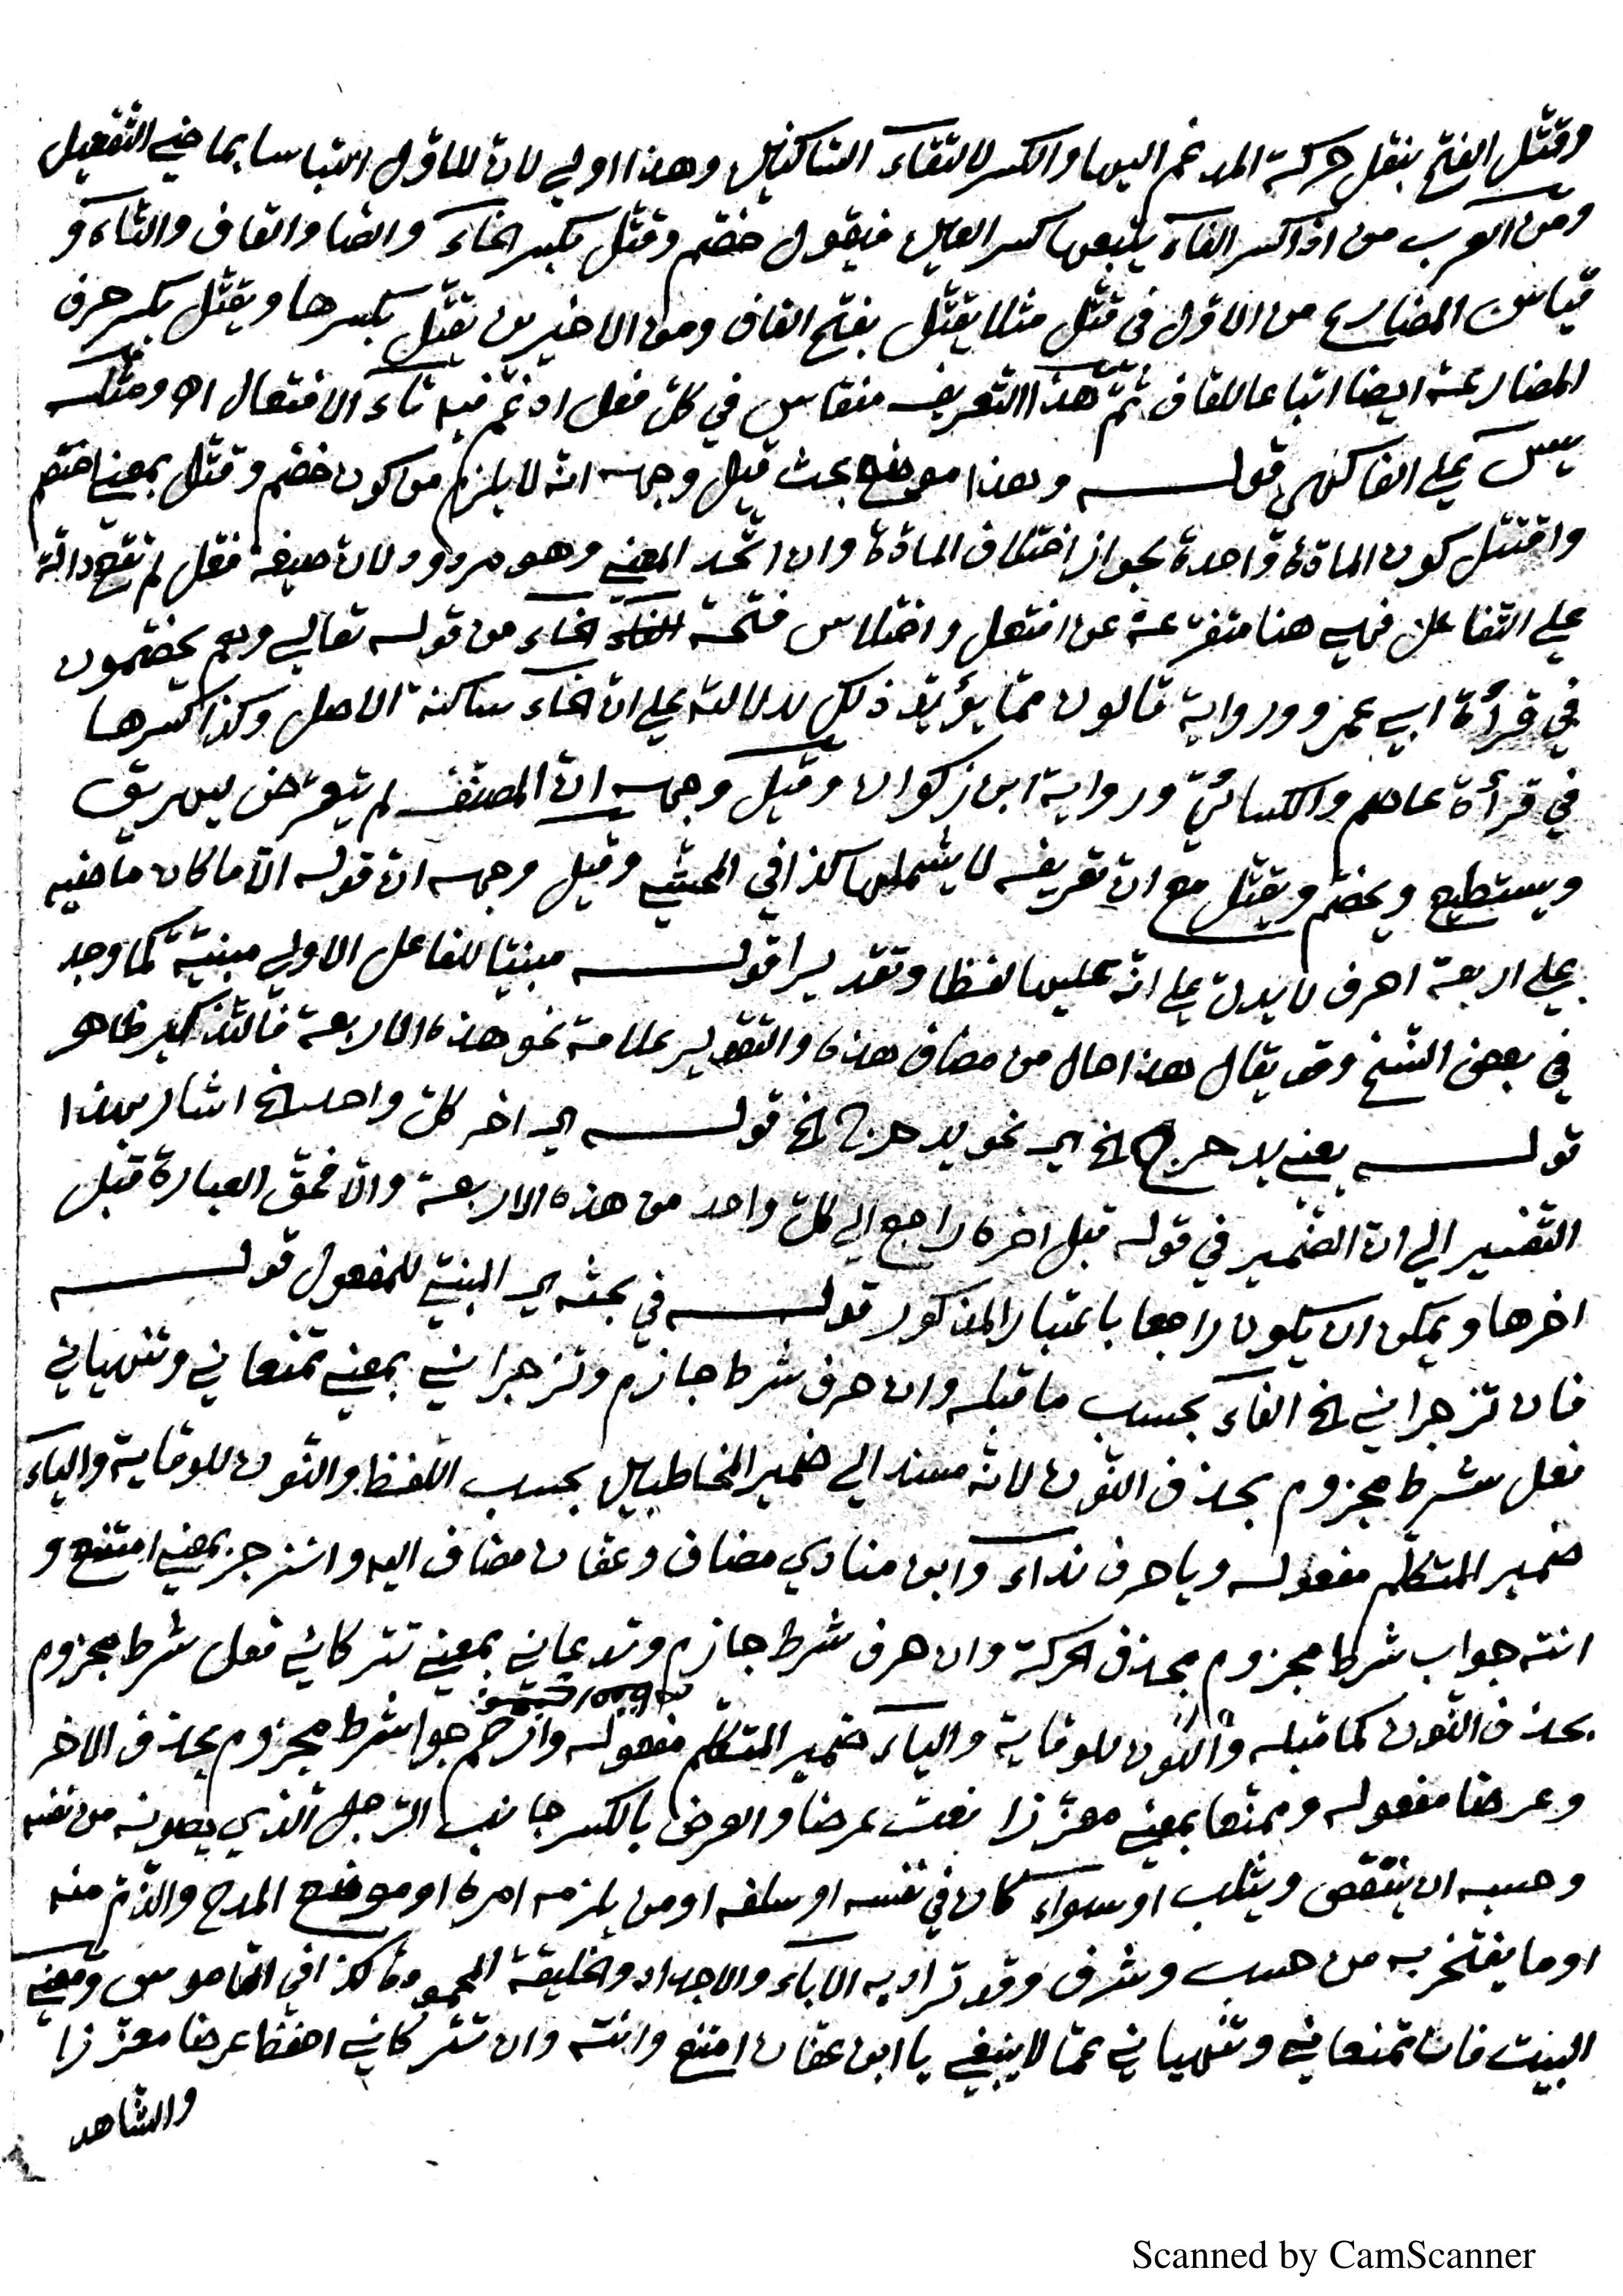 وقتّل الفتح بنقل حركة المدغم اليها والكسر لالتقاء الساكنين وهذا اولي لانّ للاوّل التباسا بماضي التّفعيل
ومن العرب من اذا كسر الفاء يتبعها كسر العين فيقول خصّم وقتّل بكسر الخاء والصّاد والقاف والتّاء و
قياس المضارع من الاوّل في قتّل مثلا يقتّل بفتح القاف ومن الاخيرين يقتّل بكسرها ويقتّل بكسر حرف
المضارعة ايضا اتباعا للقاف ثمّ هذا التّعريف منقاس في كلّ فعل ادغم فيه تاء الافتعال اه ومثله
يس علي الفاكهي قوله وهذا موضع بحث قيل وجهه انّه لا يلزم من كون خصّم وقتّل بمعني اختصم
واقتتل كون المادّة واحدة لجواز اختلاف المادّة وان اتّحد المعني وهو مردود لانّ صيغة فعّل لم تقع دالّة
علي التّفاعل فهي هنا متفرّعة عن افتعل واختلاس فتحة الخاء من قوله تعالي وهم يخصّمون
في قراءة ابي عمرو ورواية قالون ممّا يؤيّد ذلك لدلالته علي انّ الخاء ساكنة الاصل وكذا كسرها
في قراءة عاصم والكسائيّ ورواية ابن زكوان وقيل وجهه انّ المصنّف لم يتعرّض ليهريق
ويستطيع ويخصّم ويقتّل مع انّ تعريفه لا يشملها كذا في المحشّي وقيل وجهه انّ قوله الّا ما كان ماضيه
علي اربعة احرف لا يدلّ علي انّه عليها لفظا وتقديرا قوله مبنيّا للفاعل الاولي مبنيّة كما وجد
في بعض النّسخ وقد يقال هذا حال من مضاف هذه والتّقدير علامة نحو هذه الاربعة فالتّذكير ظاهر
قوله يعني يدحرج الخ اي نحو يدحرج الخ قوله اي اخر كلّ واحد الخ اشار بهذا
التّفسير الي انّ الضّمير في قوله قبل اخره راجع الي كلّ واحد من هذه الاربعة والّا فحقّ العبارة قبل
اخرها ويمكن ان يكون راجعا باعتبار المذكور قوله في بحثه اي المبنيّ للمفعول قوله
فان تزجراني الخ الفاء بحسب ما قبله وان حرف شرط جازم وتزجراني بمعني تمنعاني وتنهياني
فعل شرط مجزوم بحذف النّون لانّه مسند الي ضمير المخاطبين بحسب اللّفظ والنّون للوقاية والياء
ضمير المتكلّم مفعوله ويا حرف نداء وابن منادي مضاف وعفان مضاف اليه وانزجر بمعني امتنع و
انته جواب شرط مجزوم بحذف الحركة وان حرف شرط جازم وتدعاني بمعني تتركاني فعل شرط مجزوم
بحذف النّون كما قبله والنّون للوقاية والياء ضمير المتكلّم مفعوله واحم جواشرط مجزوم بحذف الاخر
وعرضا مفعوله وممنّعا بمعني معزّزا نعت عرضا والعرض بالكسر جانب الرّجل الّذي يصونه من نفسه
وحسبه ان ينتقص ويثلب او سواء كان في نفسه او سلفه او من يلزمه امره او موضع المدح والذّمّ منه
او ما يفتخر به من حسب وشرف وقد تراد به الاباء والاجداد والخليقة المحمودة كذا في القاموس ومعني
البيت فان تمنعاني وتنهياني عمّا لا ينبغي يا ابن عفان امتنع وانته وان تتركاني احفظ عرضا معزّزا
والشاهد
Scanned by CamScanner